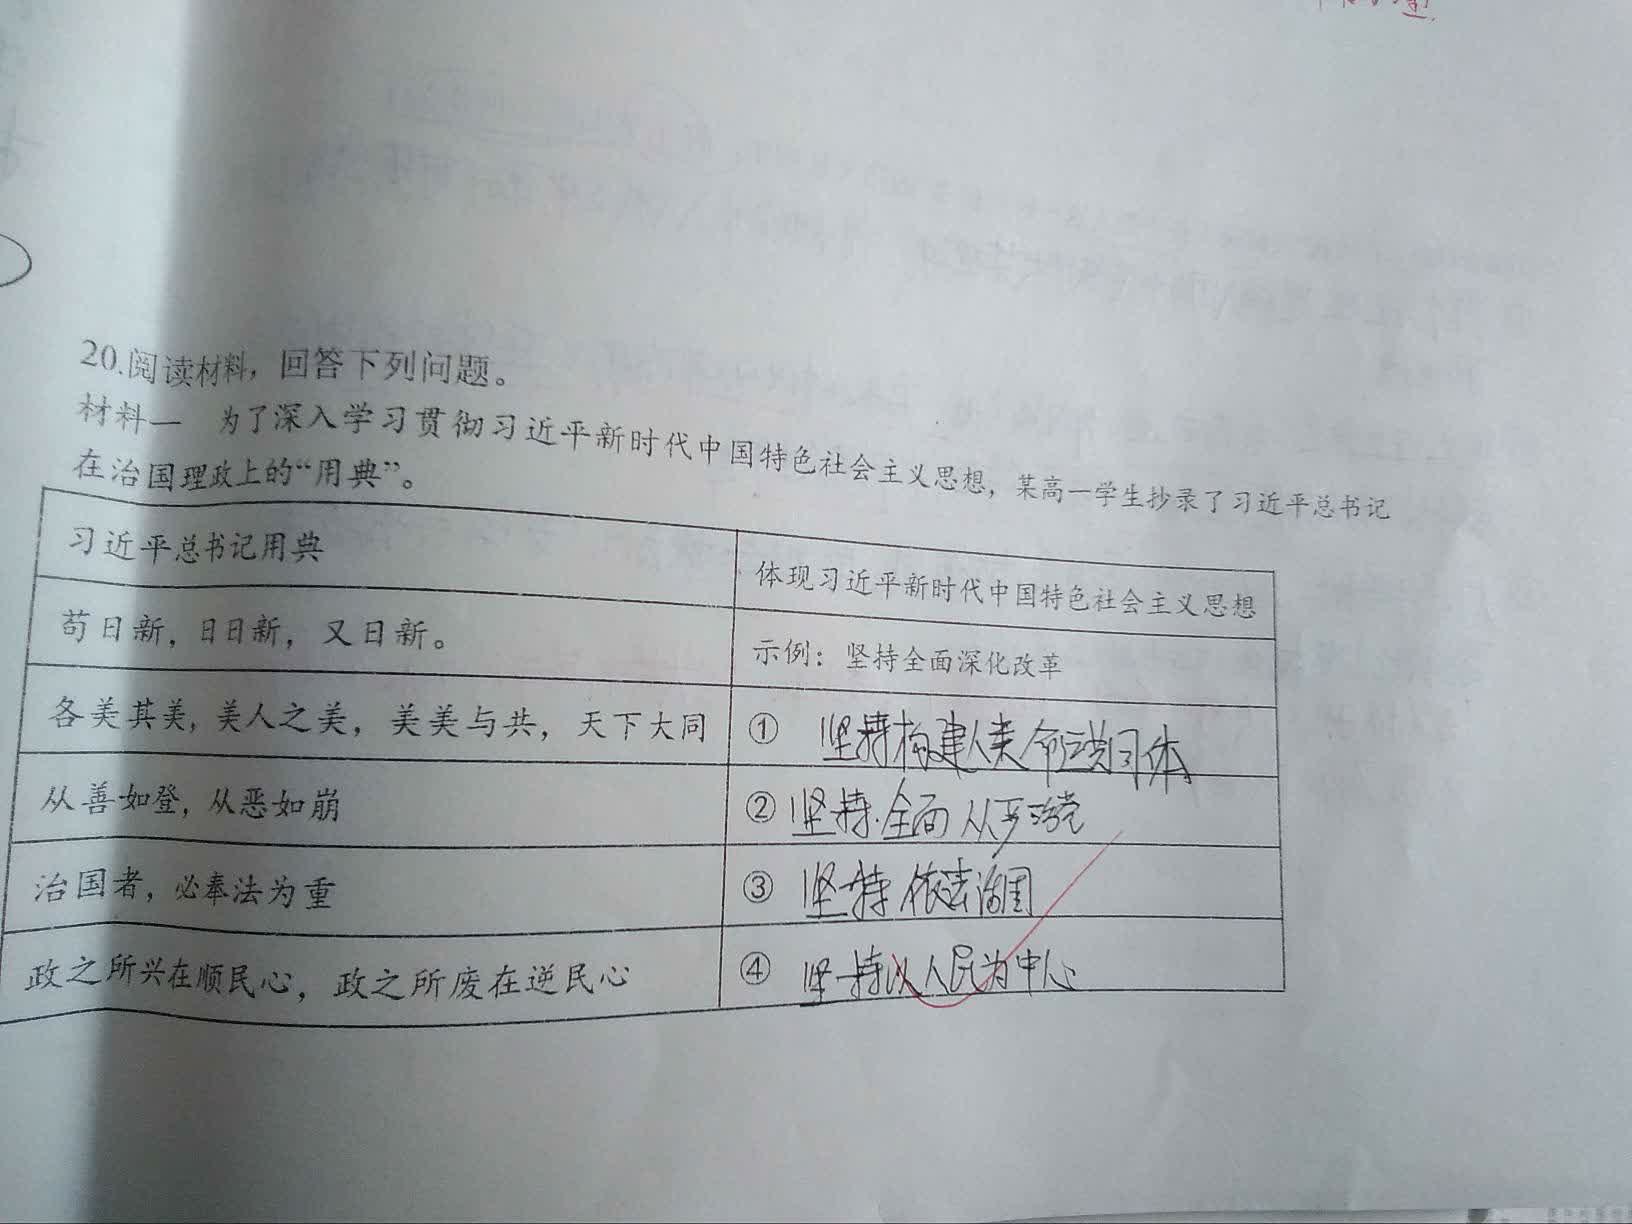 20.阅读材料，回答下列问题。
材料一 为了深入学习贯彻习近平新时代中国特色社会主义思想，某高一学生抄录了习近平总书记
在治国理政上的“用典”。
习近平总书记用典
体现习近平新时代中国特色社会主义思想
苟日新，日日新，又日新。
示例：坚持全面深化改革
各美其美，美人之美，美美与共，天下大同
① 坚持构建人类命运共同体
从善如登，从恶如崩
② 坚持全面从严治党
治国者，必奉法为重
③ 坚持依法治国
政之所兴在顺民心，政之所废在逆民心
④ 坚持以人民为中心